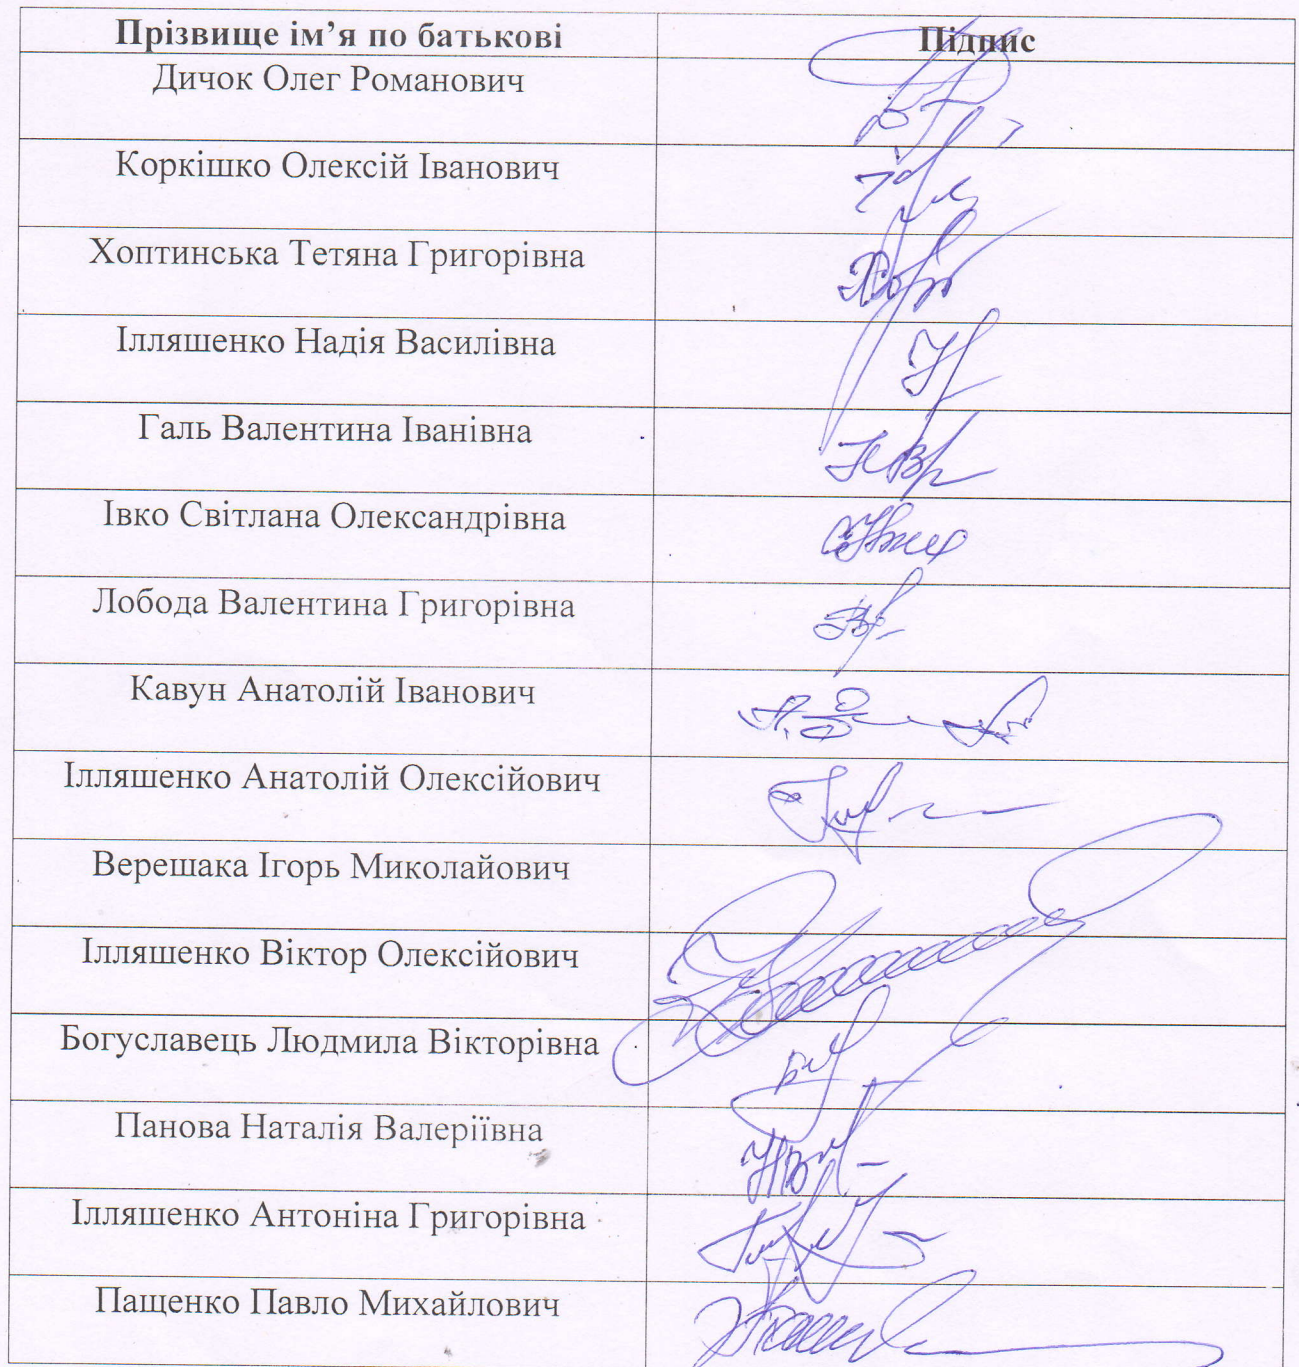 Прізвище ім’я по батькові Підпис
Дичок Олег Романович
Коркішко Олексій Іванович
Хоптинська Тетяна Григорівна
Ілляшенко Надія Василівна
Галь Валентина Іванівна
Івко Світлана Олександрівна
Лобода Валентина Григорівна
Кавун Анатолій Іванович
Ілляшенко Анатолій Олексійович
Верешака Ігорь Миколайович
Ілляшенко Віктор Олексійович
Богуславець Людмила Вікторівна
Панова Наталія Валеріївна
Ілляшенко Антоніна Григорівна
Пащенко Павло Михайлович